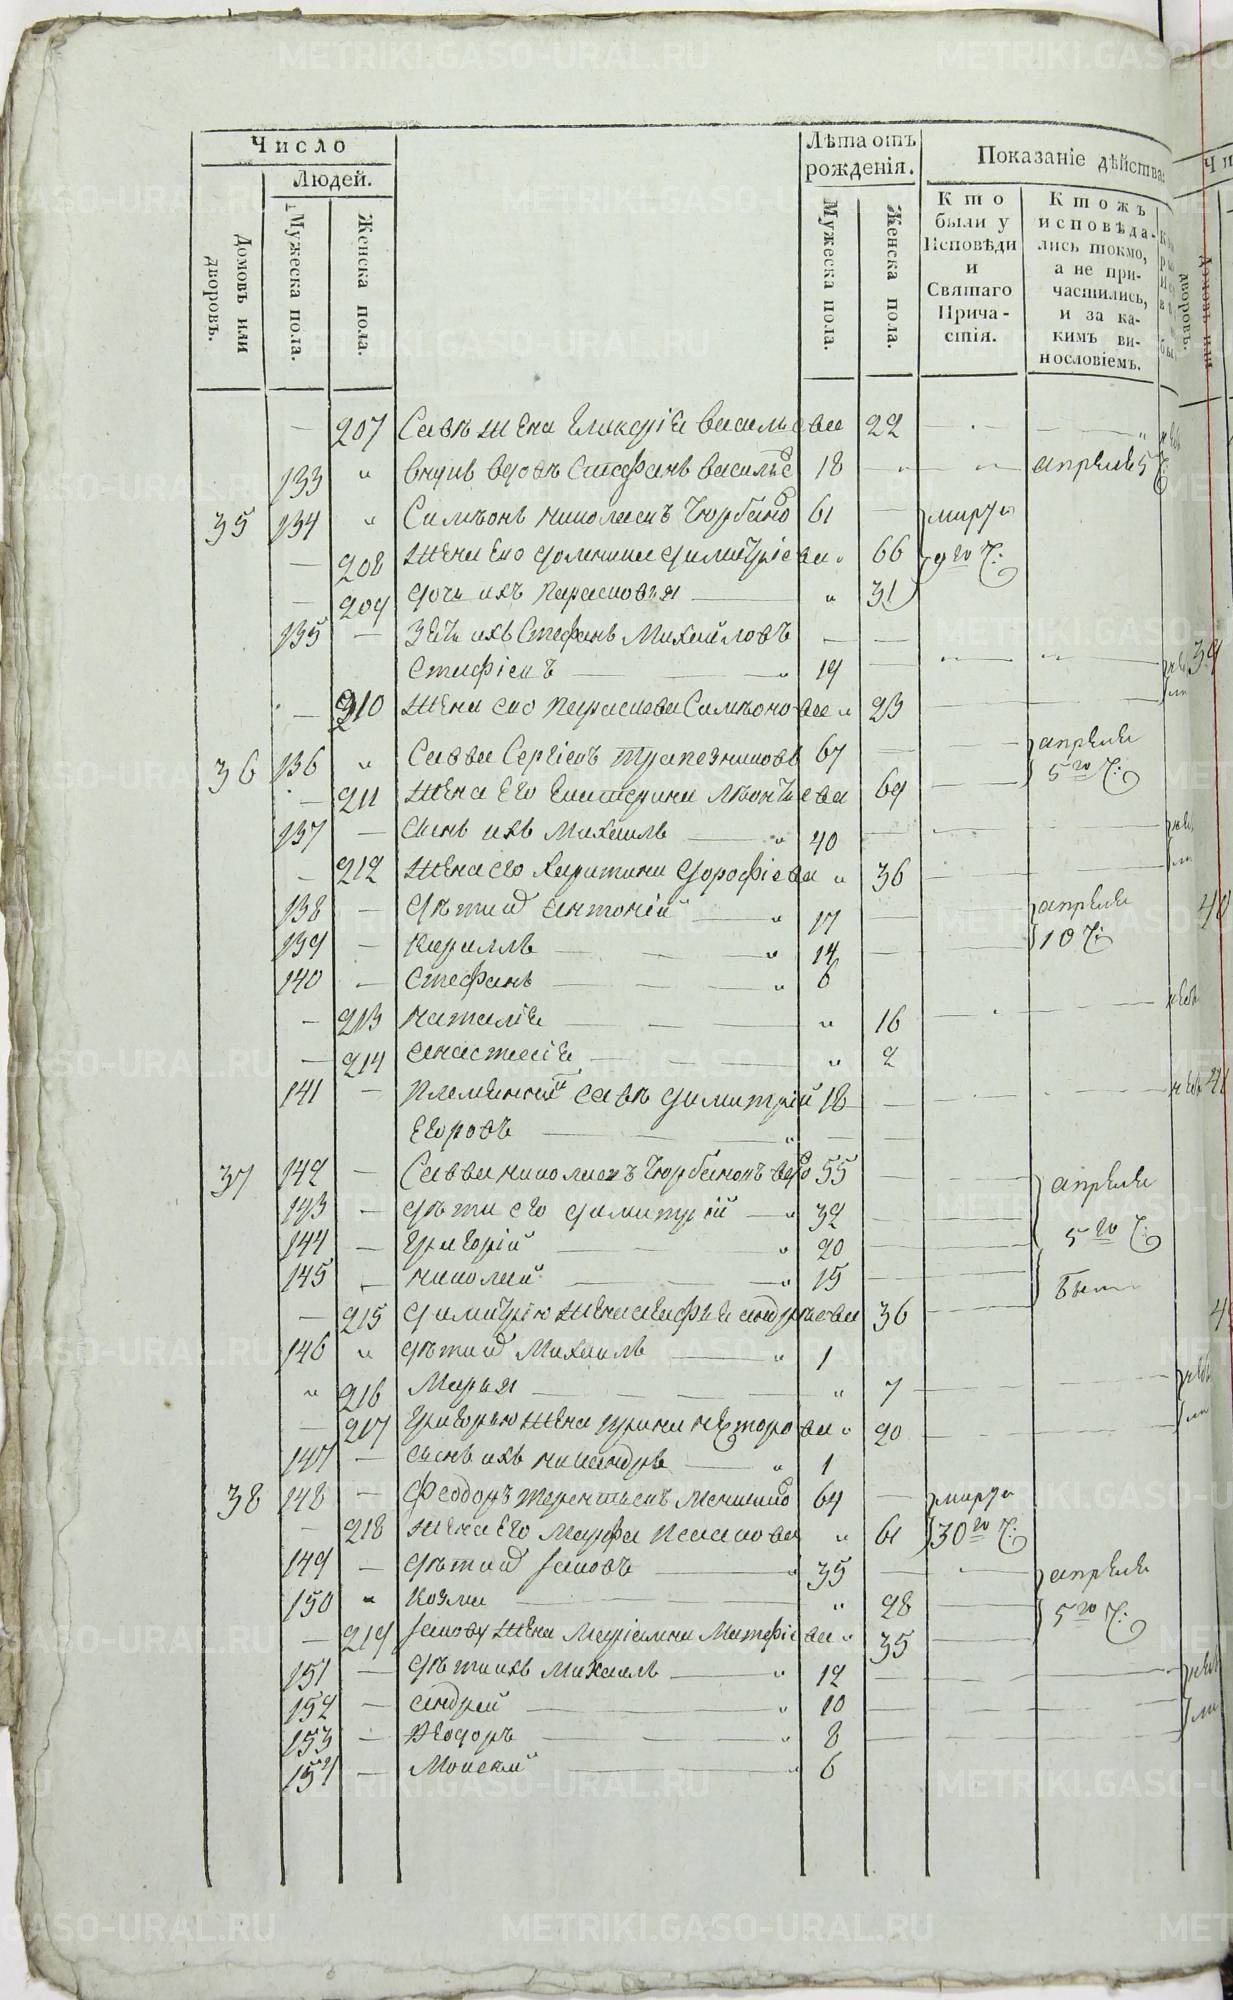 Число
Людей.
Домовъ или дворовъ.
Мужеска пола.
Женска пола.
Лѣта отъ рожденія.
Мужеска пола.
Женска пола.
Показаніе дѣйства
Кто были у Исповѣди и Святаго Прича-стія.
Ктожъ исповѣда-лись токмо, а не при-частились, и за ка-кимъ ви-нословіемъ.
— 207 Савѣ жена Гликерія Васильева 22
133 " внукъ вдовъ Стефанъ Васильевъ 18 " " апреля 5 ч:
35 134 " Симеонъ Николаевъ Чюрбановъ 61 — марта
— 208 жена его Домника Димитріева " 66 9го ч:
— 209 дочь ихъ Парасковья — " 31
135 — зять ихъ Стефанъ Михайловъ — —
Стафіевъ — " 19 — " "
— 210 жена его Параскева Симеонова " 23
36 136 " Савва Сергіевъ Трапезниковъ 67 — апреля
— 211 жена его Екатерина Леонтьева 69 — 5го ч:
137 — сынъ ихъ Михаилъ — " 40
— 212 жена его Харитина Дорофіева " 36
138 — дѣти Антоній — " 17 — апреля
139 — Кириллъ — " 14 — 10 ч:
140 — Стефанъ — " 6
— 213 Наталія — " 16
— 214 Анастасія — " 2
141 — племянникъ Савѣ Димитрій 18
Егоровъ — "
37 142 — Савва Николаевъ Чюрбановъ вдовъ 55 — апреля
143 — дѣти его Димитрій — " 32
144 — Григорій — " 20 5го ч:
145 — Николай — " 15 были
— 215 Димитрію жена Агафья Андреева 36
146 " дѣти Михаилъ — " 1
" 216 Марья — " 7
— 217 Григорью жена Ирина Нестерова " 20
147 — сынъ ихъ Никандръ — " 1
38 148 — Феодоръ Терентьевъ 64 — марта
— 218 жена его Марфа Исакова " 61 30го ч:
149 — дѣти Іаковъ — " 35 — апреля
150 " Козма — " 28 — 5го ч:
— 219 Іакову жена Маріамна Матфіева " 35
151 — дѣти ихъ Михаилъ — " 12
152 — Андрей — " 10
153 — Ѳеодоръ — " 8
154 — Моисей — " 6
39
40
41
METRIKI.GASO-URAL.RU